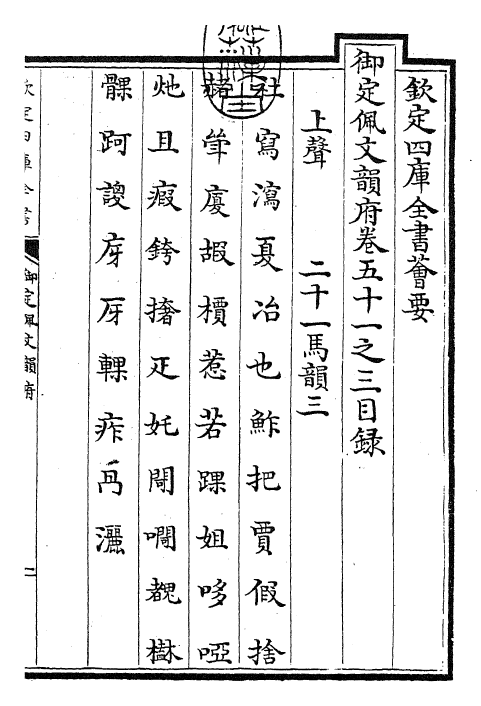 欽定四庫全書薈要
御定佩文韻府卷五十一之三目録
上聲 二十一馬韻三
社寫瀉夏冶也鮓把賈假捨
赭厦嘏檟惹若踝姐哆啞
灺且瘕銙撦疋奼閜㗿
髁跒謏庌厊輠痄冎灑
欽定四庫全書
御定佩文韻府